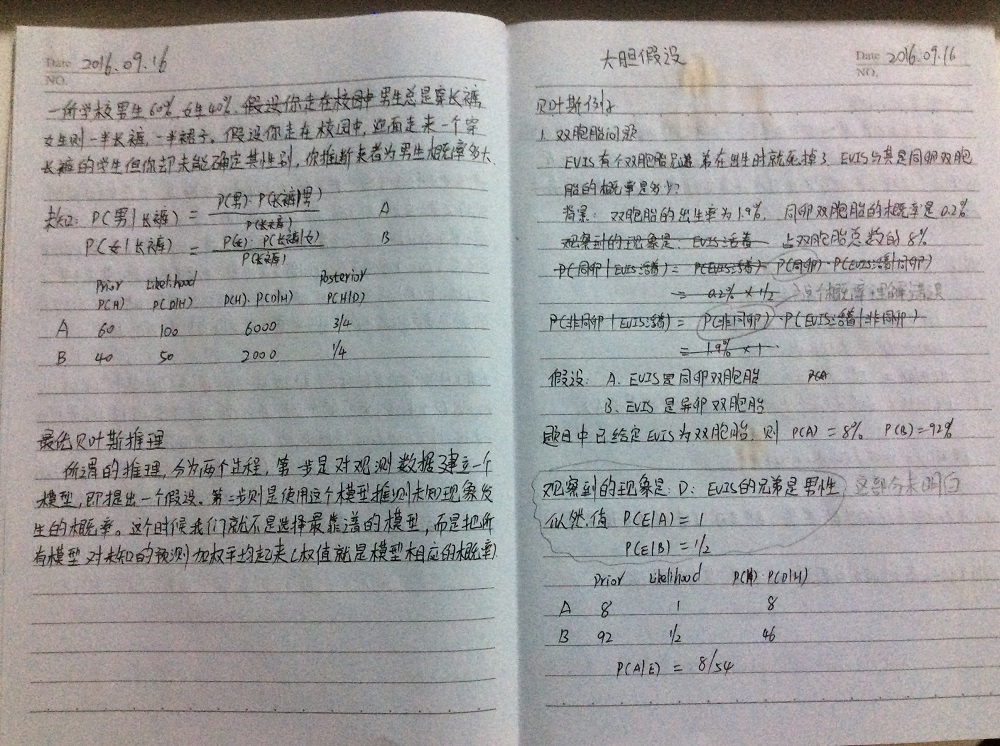 Date 2016.09.16
NO.
一所学校男生60%,女生40%. 假设你走在校园中 男生总是穿长裤
女生则一半长裤,一半裙子。假设你走在校园中,迎面走来一个穿
长裤的学生但你却未能确定其性别,你推断来者为男生概率多大.
P(男|长裤) = P(男)·P(长裤|男) / P(长裤) A
P(女|长裤) = P(女)·P(长裤|女) / P(长裤) B
Prior Likelihood Posterior
P(H) P(D|H) P(H)·P(D|H) P(H|D)
A 60 100 6000 3/4
B 40 50 2000 1/4
最优贝叶斯推理
所谓的推理,分为两个过程,第一步是对观测数据建立一个
模型,即提出一个假设。第二步则是使用这个模型推测未知现象发
生的概率。这个时候我们就不是选择最靠谱的模型,而是把所
有模型对未知的预测加权平均起来(权值就是模型相应的概率)
大胆假设
Date 2016.09.16
NO.
贝叶斯例2
1. 双胞胎问题
EVIS有个双胞胎兄弟 弟在出生时就死掉了, EVIS与其是同卵双胞
胎的概率是多少?
背景: 双胞胎的出生率为1.9%. 同卵双胞胎的概率是0.2%
观察到的现象是: EVIS活着 占双胞胎总数的8%
P(同卵|EVIS活着) = P(EVIS活着) P(同卵)·P(EVIS活着|同卵)
= 0.2% × 1/2 这个概率理解错误
P(非同卵|EVIS活着) = P(非同卵)·P(EVIS活着|非同卵)
= 1.9% × 1
假设: A. EVIS是同卵双胞胎 P(A
B. EVIS是异卵双胞胎
题目中已给定EVIS为双胞胎, 则 P(A) = 8% P(B)=92%
观察到的现象是: D: EVIS的兄弟是男性, 这部分未明白
似然值 P(E|A) = 1
P(E|B) = 1/2
Prior Likelihood P(H) P(D|H)
A 8 1 8
B 92 1/2 46
P(A|E) = 8/54